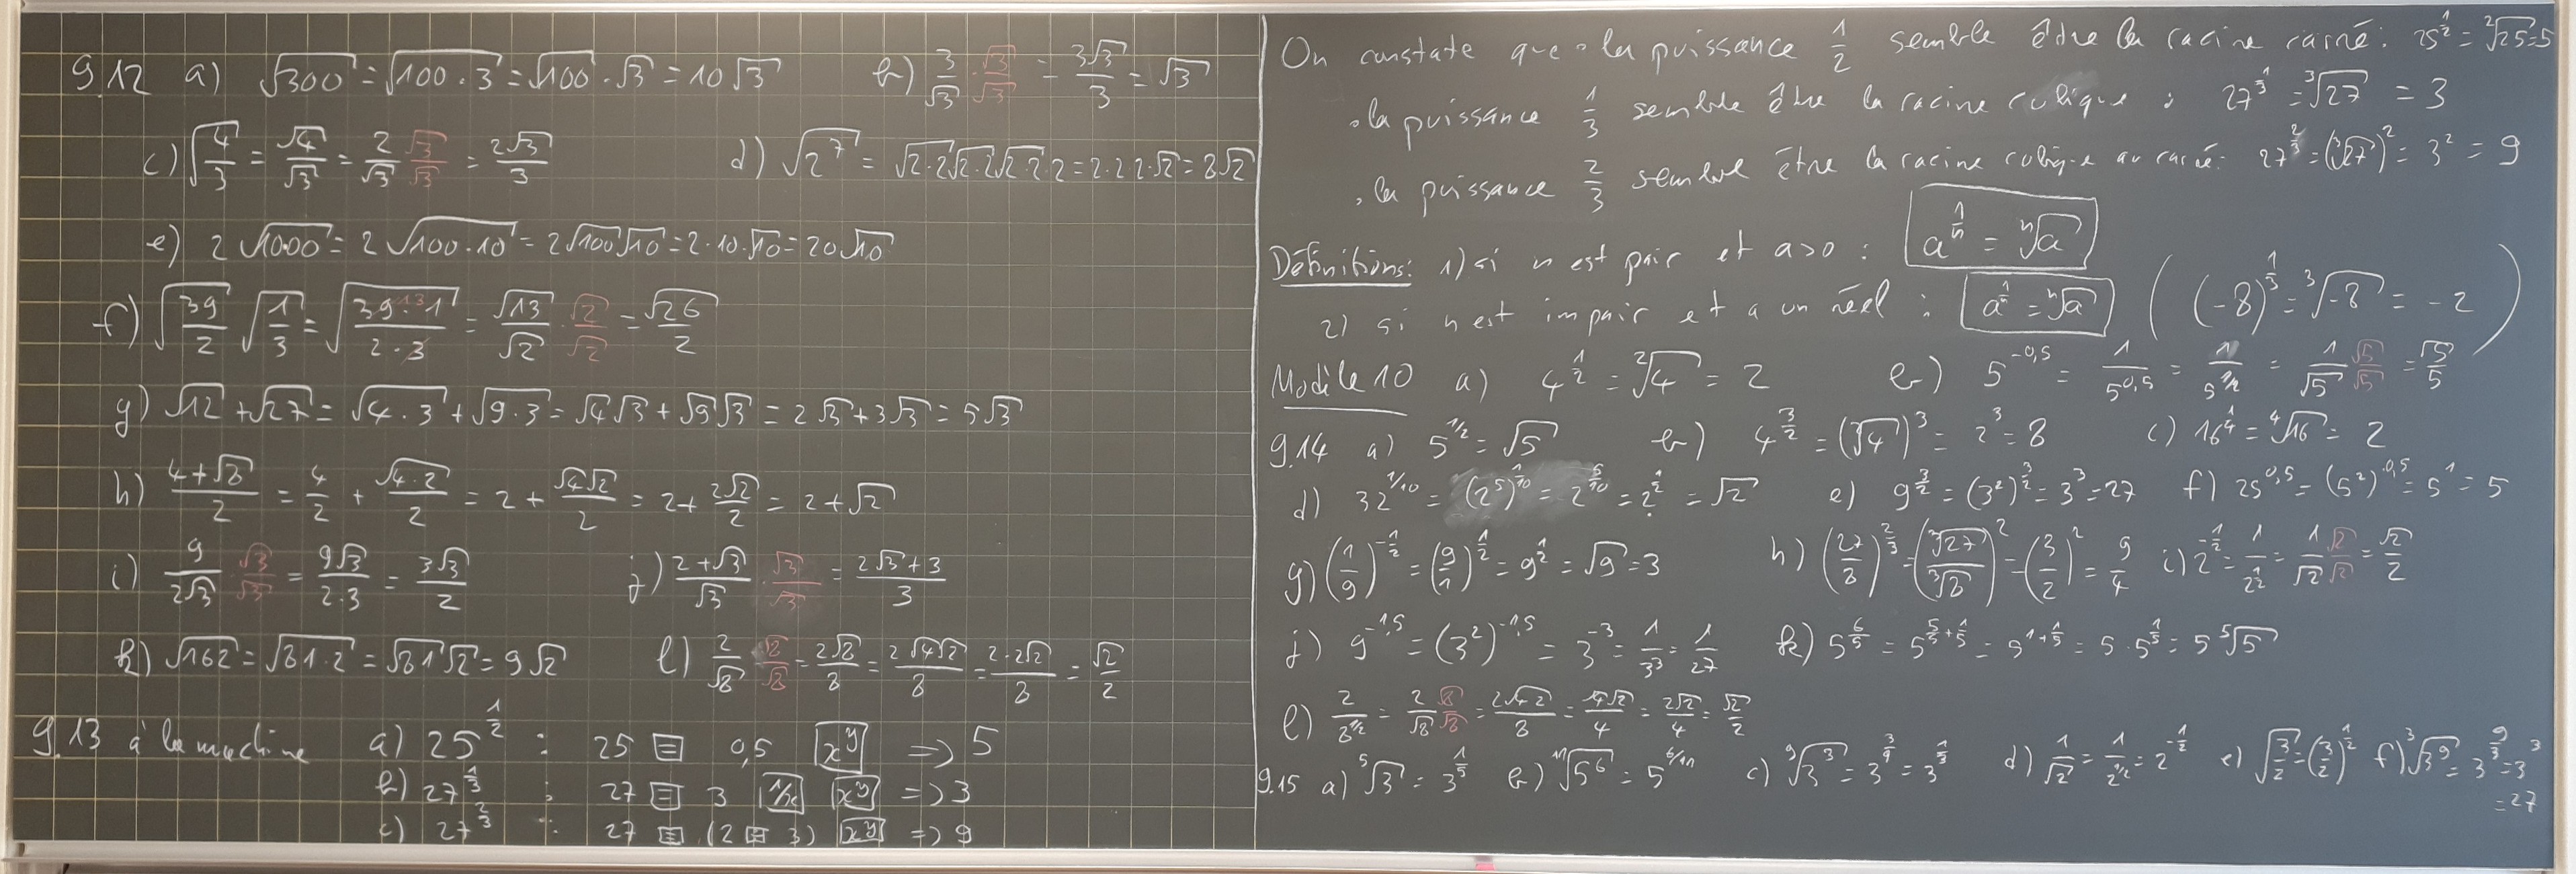 9.12 a) √300 = √(100·3) = √100·√3 = 10√3 b) 3/√3 · √3/√3 = 3√3/3 = √3
c) √(4/3) = √4/√3 = 2/√3 √3/√3 = 2√3/3 d) √(2⁷) = √(2·2)√(2·2)√(2·2)·2 = 2·2·2·√2 = 8√2
e) 2√1000 = 2√(100·10) = 2√100√10 = 2·10·√10 = 20√10
f) √(39/2) √(1/3) = √((39 13·1)/(2·3)) = √13/√2 · √2/√2 = √26/2
g) √12 + √27 = √(4·3) + √(9·3) = √4√3 + √9√3 = 2√3 + 3√3 = 5√3
h) (4+√8)/2 = 4/2 + √(4·2)/2 = 2 + √4√2/2 = 2 + 2√2/2 = 2 + √2
i) 9/(2√3) · √3/√3 = 9√3/(2·3) = 3√3/2 j) (2+√3)/√3 · √3/√3 = (2√3+3)/3
k) √162 = √(81·2) = √81√2 = 9√2 l) 2/√8 √8/√8 = 2√8/8 = 2√4√2/8 = 2·2√2/8 = √2/2
9.13 à la machine a) 25^(1/2) : 25 [=] 0,5 [x^y] => 5
b) 27^(1/3) : 27 [=] 3 [1/x] [x^y] => 3
c) 27^(2/3) : 27 [=] (2 [÷] 3) [x^y] => 9
On constate que • la puissance 1/2 semble être la racine carré : 25^(1/2) = ²√25 = 5
• la puissance 1/3 semble être la racine cubique : 27^(1/3) = ³√27 = 3
• la puissance 2/3 semble être la racine cubique au carré : 27^(2/3) = (³√27)² = 3² = 9
Définitions : 1) si n est pair et a>0 : a^(1/n) = ⁿ√a
2) si n est impair et a un réel : a^(1/n) = ⁿ√a ((-8)^(1/3) = ³√-8 = -2)
Modèle 10 a) 4^(1/2) = ²√4 = 2 b) 5^(-0,5) = 1/5^(0,5) = 1/5^(1/2) = 1/√5 √5/√5 = √5/5
9.14 a) 5^(1/2) = √5 b) 4^(3/2) = (²√4)³ = 2³ = 8 c) 16^(1/4) = ⁴√16 = 2
d) 32^(1/10) = (2⁵)^(1/10) = 2^(5/10) = 2^(1/2) = √2 e) 9^(3/2) = (3²)^(3/2) = 3³ = 27 f) 25^(0,5) = (5²)^(0,5) = 5¹ = 5
g) (1/9)^(-1/2) = (9/1)^(1/2) = 9^(1/2) = √9 = 3 h) (27/8)^(2/3) = (³√27/³√8)² = (3/2)² = 9/4 i) 2^(-1/2) = 1/2^(1/2) = 1/√2 √2/√2 = √2/2
j) 9^(-1,5) = (3²)^(-1,5) = 3^(-3) = 1/3³ = 1/27 k) 5^(6/5) = 5^(5/5+1/5) = 5^(1+1/5) = 5·5^(1/5) = 5 ⁵√5
l) 2/8^(1/2) = 2/√8 √8/√8 = 2√(4·2)/8 = √4√2/4 = 2√2/4 = √2/2
9.15 a) ⁵√3 = 3^(1/5) b) ¹¹√(5⁶) = 5^(6/11) c) ⁹√(3³) = 3^(3/9) = 3^(1/3) d) 1/√2 = 1/2^(1/2) = 2^(-1/2) e) √(3/2) = (3/2)^(1/2) f) ³√(3⁹) = 3^(9/3) = 3³
= 27